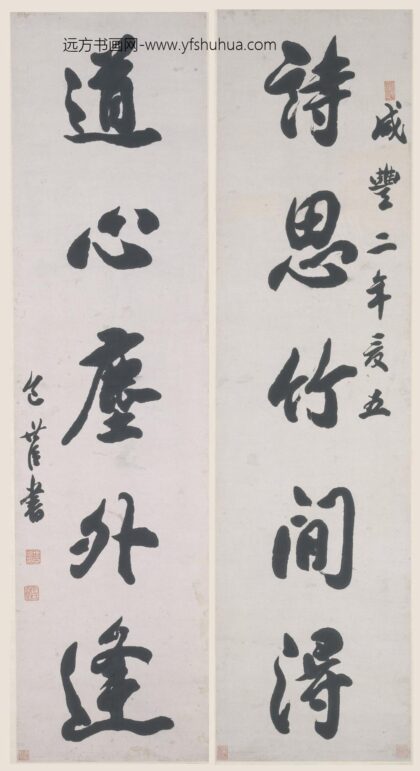 远方书画网-www.yfshuhua.com
咸豐二年夏五
詩思竹間得
道心塵外逢
包世臣書